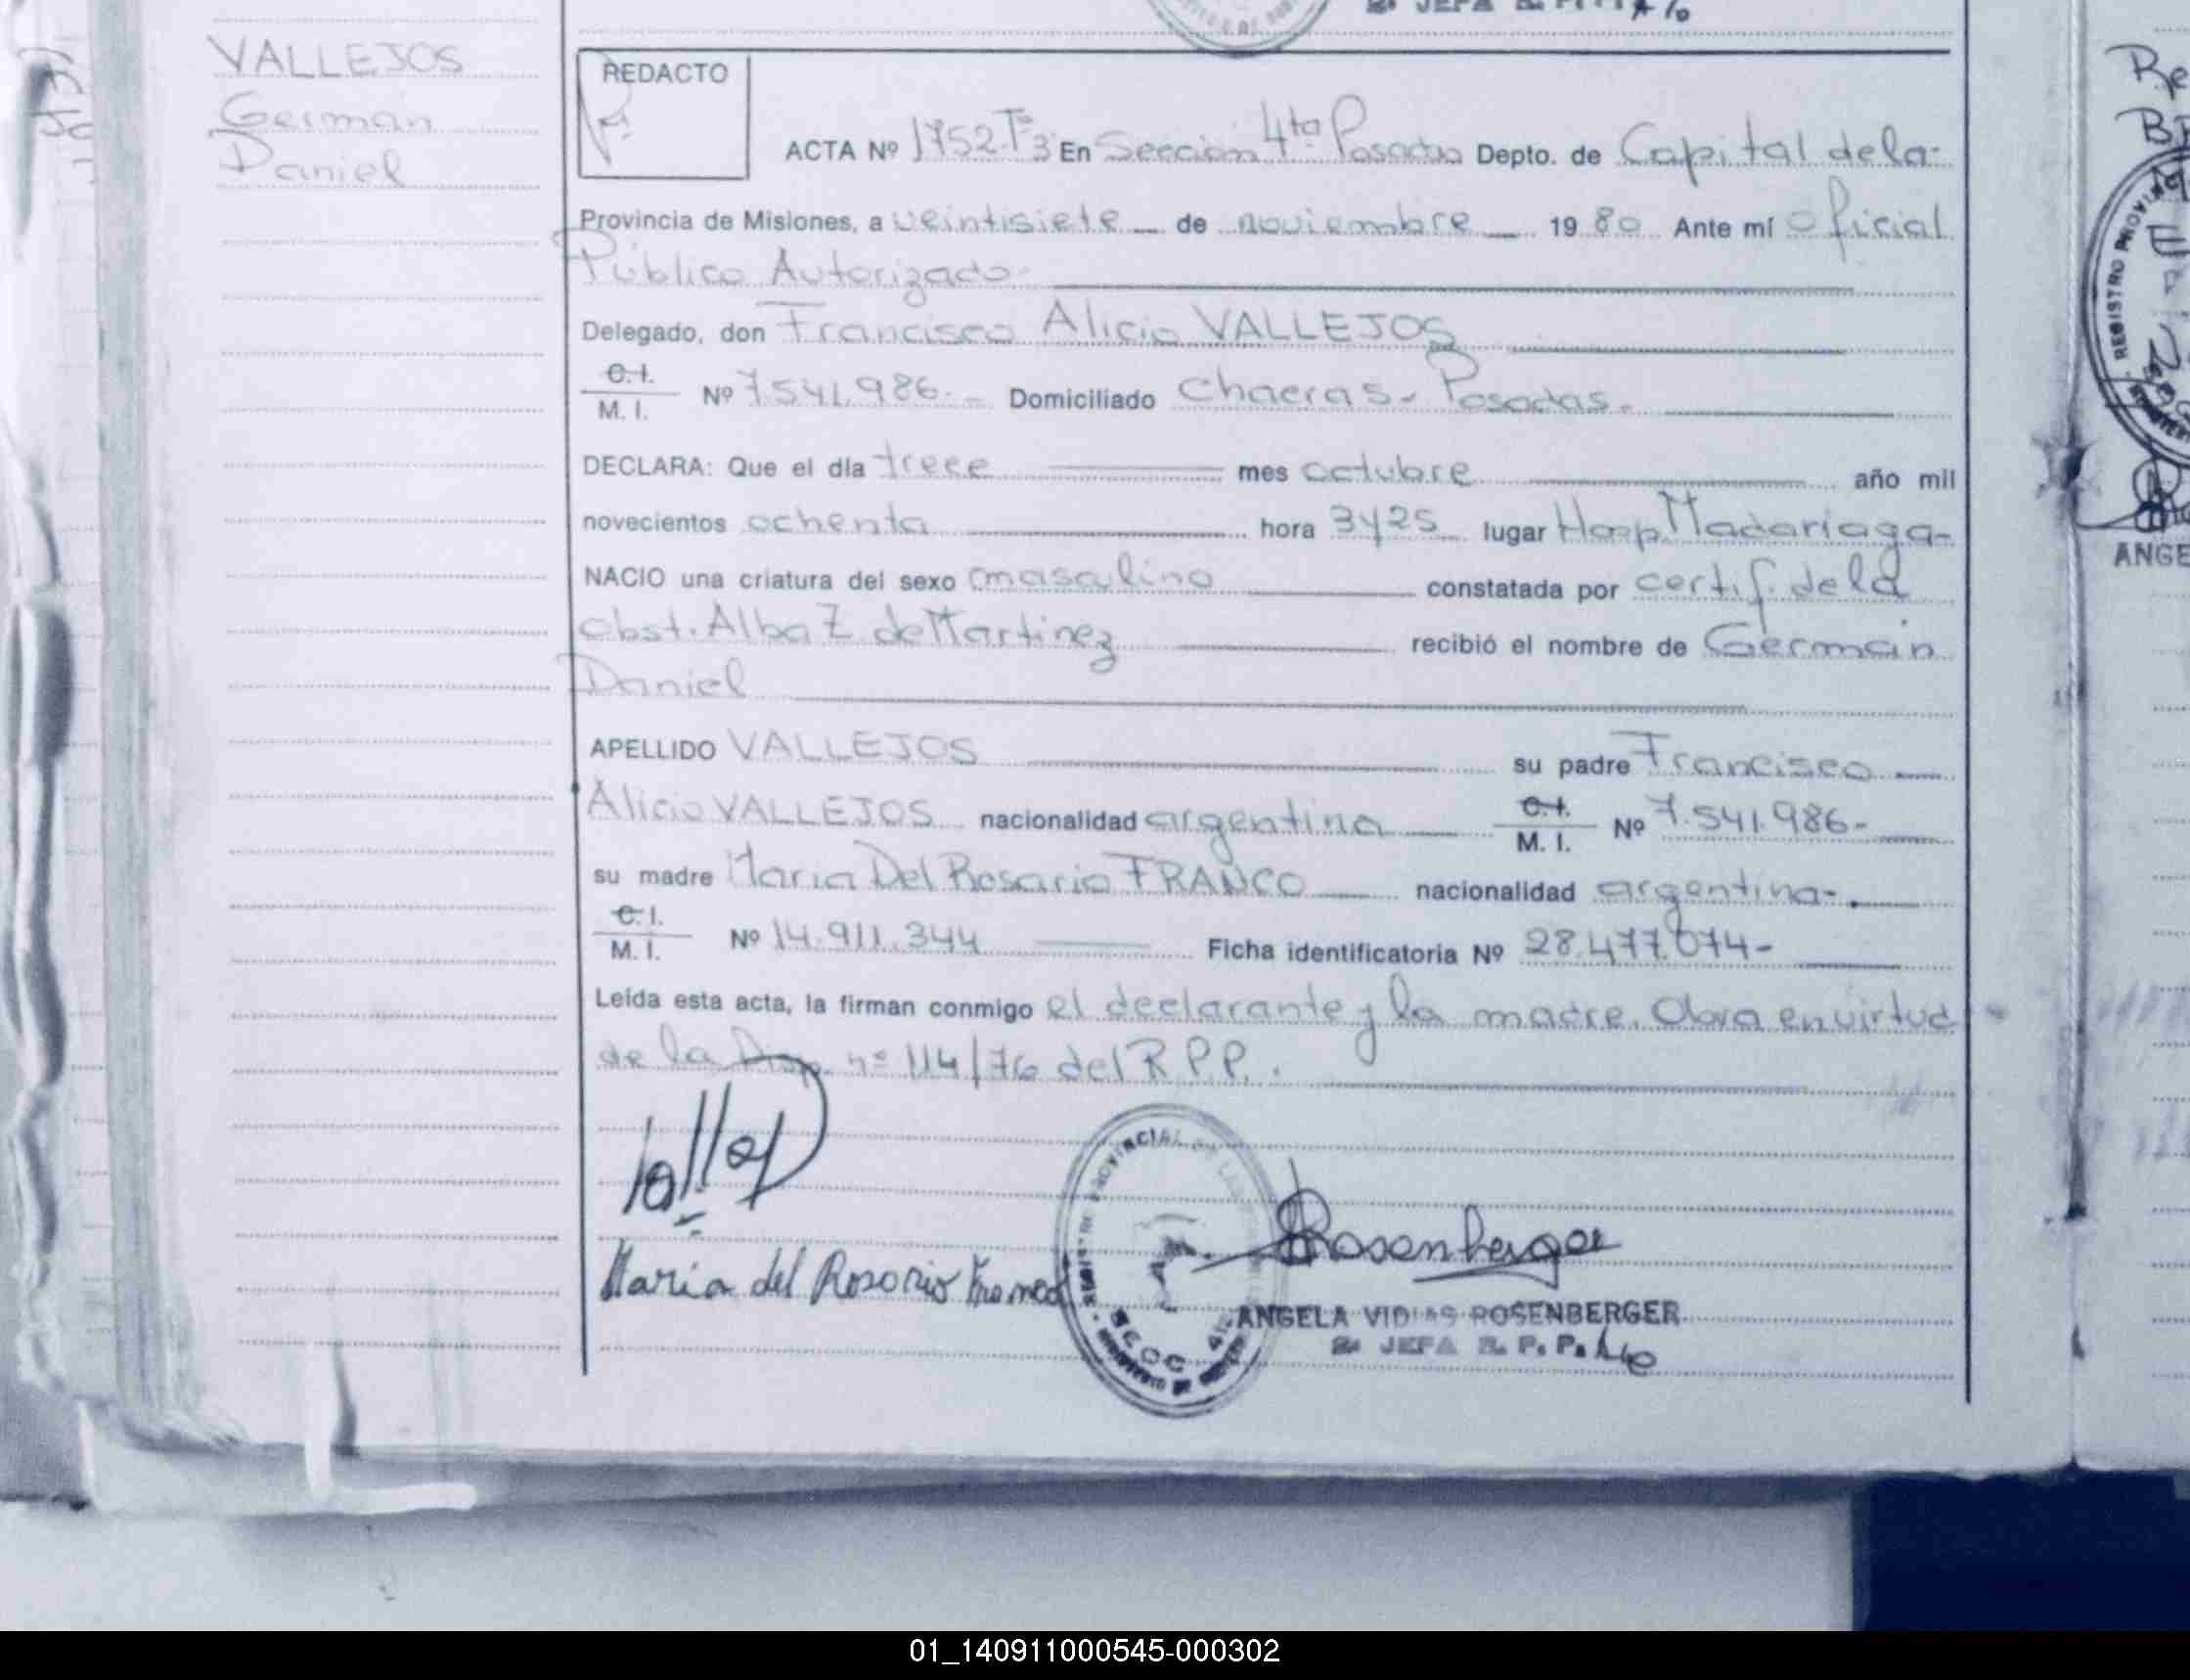 2ª JEFA R. P. P. A/c
VALLEJOS
German
Daniel
REDACTO
ACTA Nº 1752 Tº 3 En Sección 4ta Posadas Depto. de Capital de la-
Provincia de Misiones, a veintisiete de noviembre 19 80 Ante mí Oficial
Público Autorizado
Delegado, don Francisco Alicio VALLEJOS
C. I.
M. I. Nº 7.541.986.- Domiciliado Chacras - Posadas.-
DECLARA: Que el día trece mes octubre año mil
novecientos ochenta hora 3y25 lugar Hosp. Madariaga-
NACIO una criatura del sexo masculino constatada por certif. de la
obst. Alba Z. de Martinez recibió el nombre de Germán
Daniel
APELLIDO VALLEJOS su padre Francisco
Alicio VALLEJOS nacionalidad argentina C. I. M. I. Nº 7.541.986-
su madre Maria Del Rosario FRANCO nacionalidad argentina-.
C. I.
M. I. Nº 14.911.344 Ficha identificatoria Nº 28.477.074-
Leída esta acta, la firman conmigo el declarante y la madre. Obra en virtud
de la Disp. nº 114/76 del R.P.P.
Maria del Rosario Franco
Rosenberger
ANGELA VIDIAS ROSENBERGER
2ª JEFA R. P. P. A/c
PROVINCIAL
SECC 4
REGISTRO PROVIN
ANGE
01_140911000545-000302